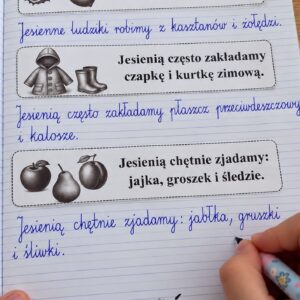 Jesienne ludziki robimy z kasztanów i żołędzi.
Jesienią często zakładamy
czapkę i kurtkę zimową.
Jesienią często zakładamy płaszcz przeciwdeszczowy
i kalosze.
Jesienią chętnie zjadamy:
jajka, groszek i śledzie.
Jesienią chętnie zjadamy: jabłka, gruszki
i śliwki.